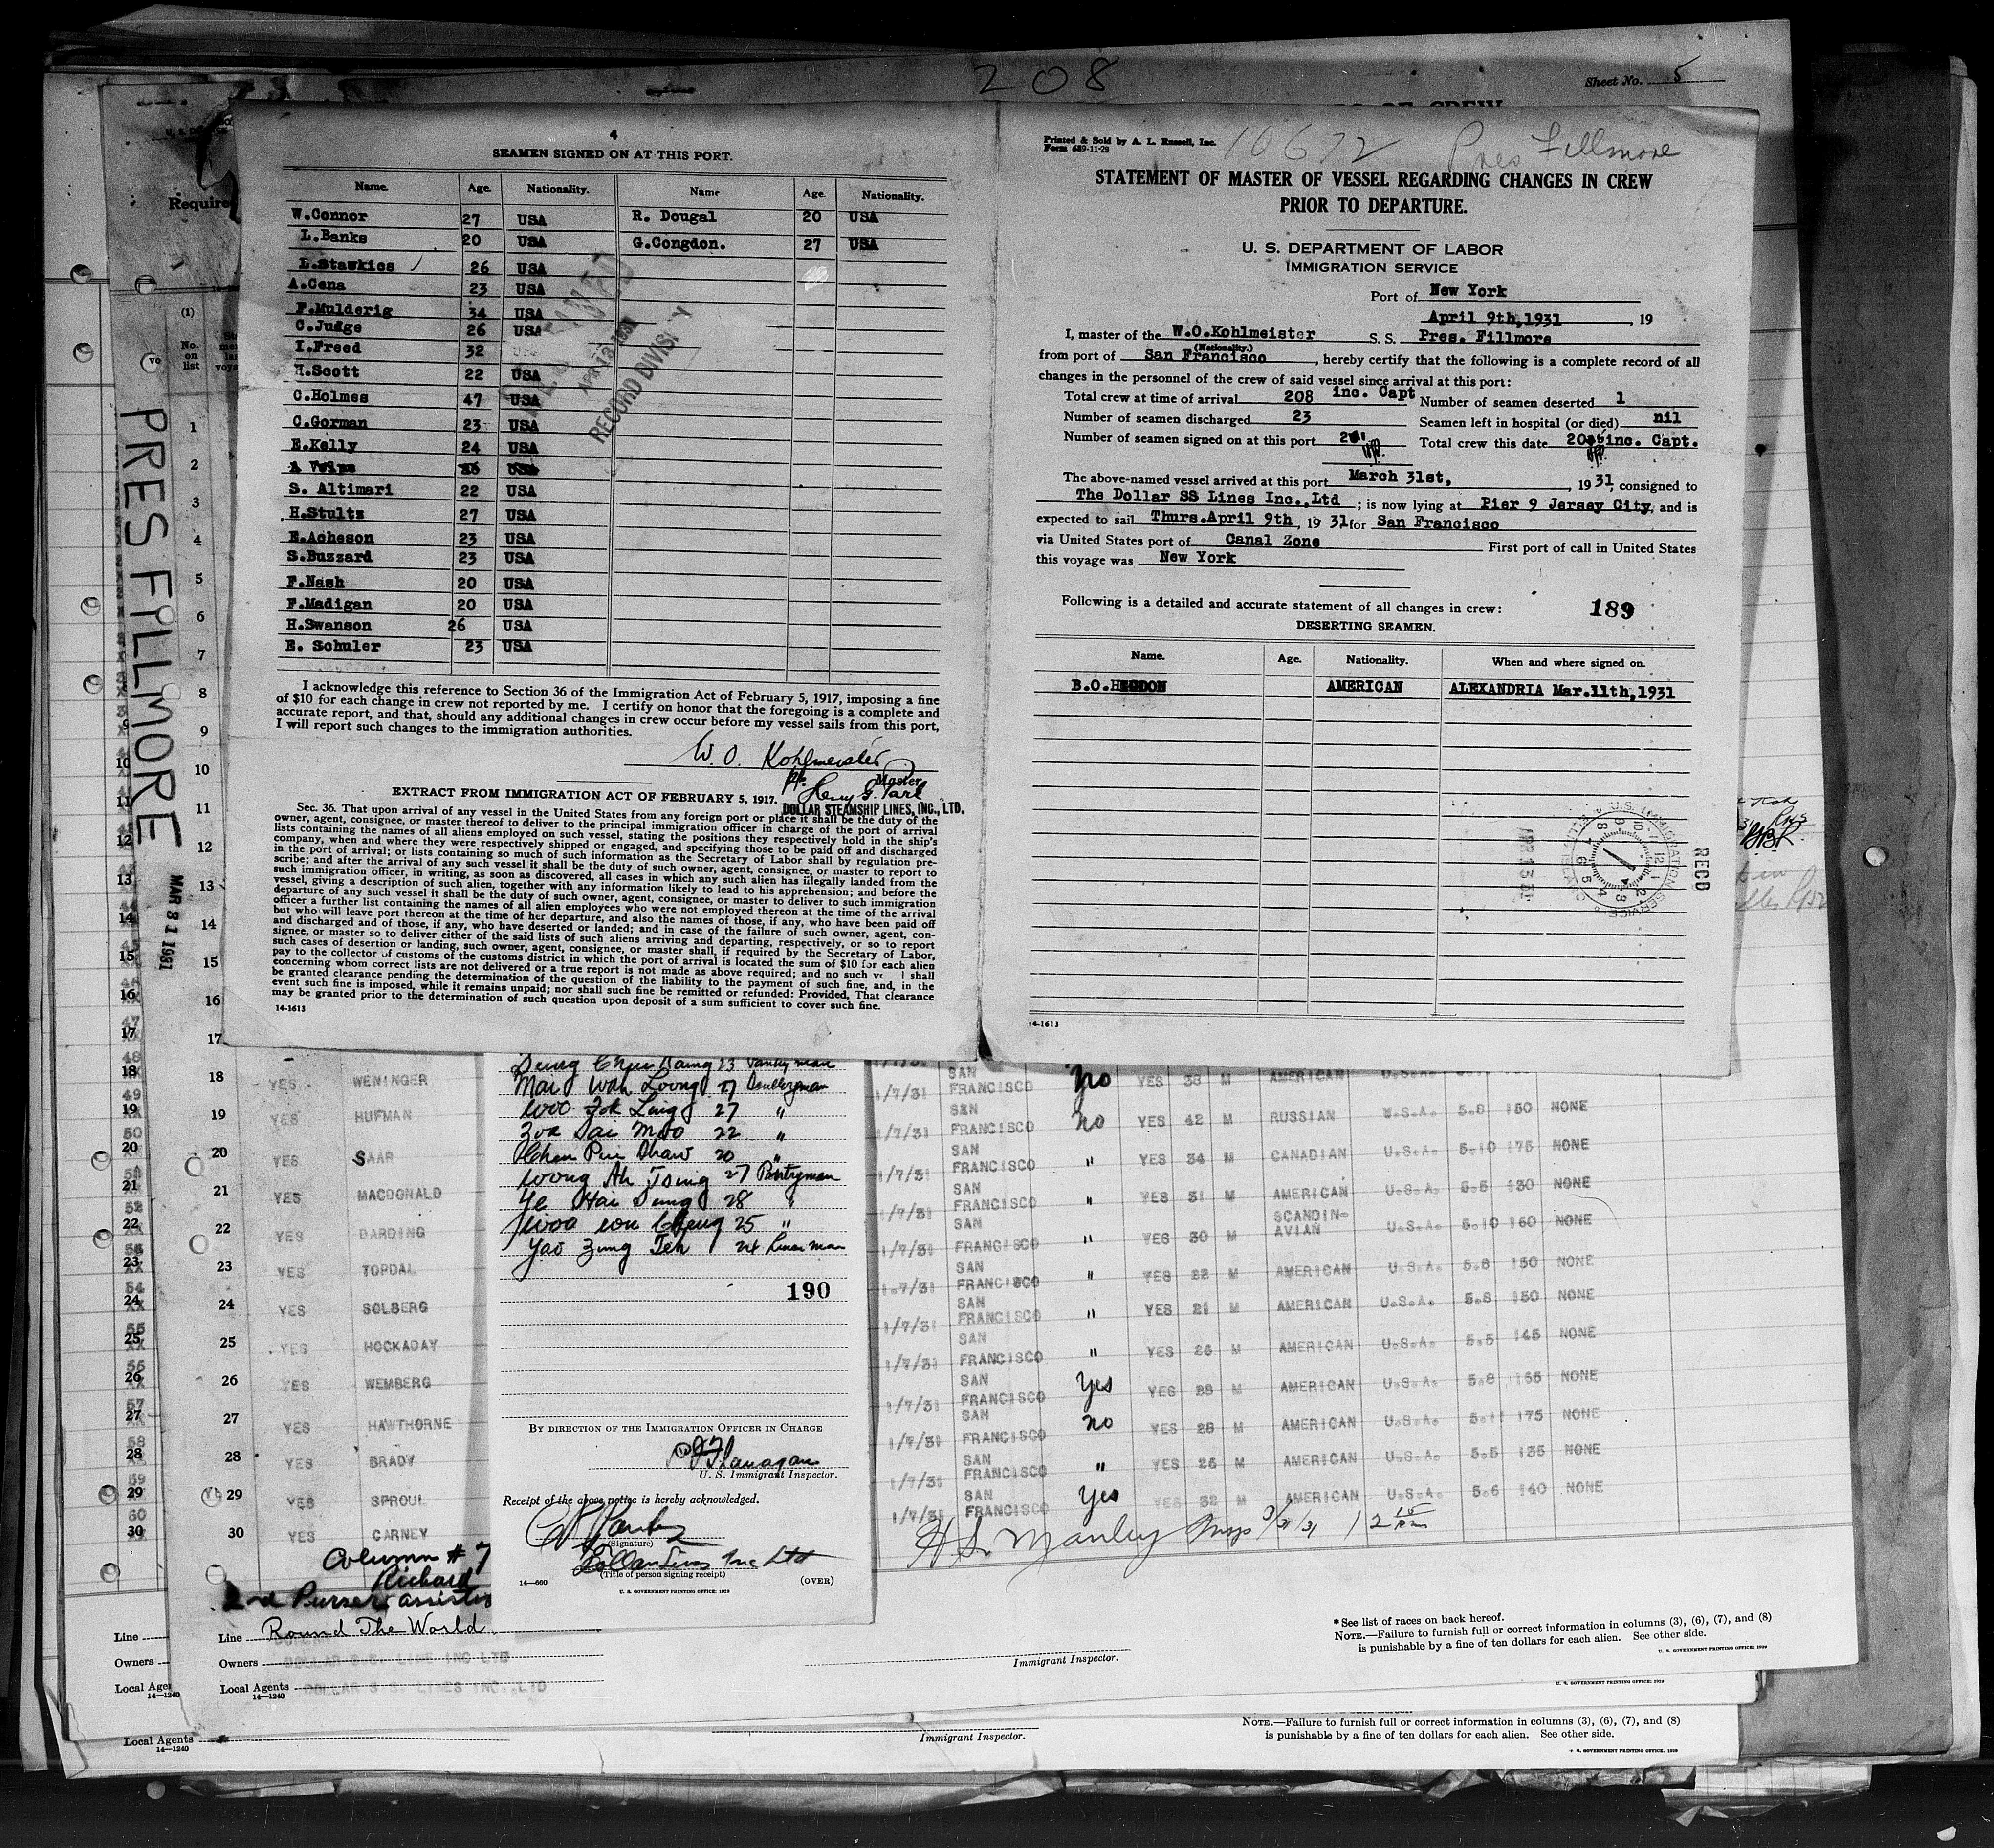 208
Sheet No. 5
4
SEAMEN SIGNED ON AT THIS PORT.
Name. Age. Nationality. Name Age. Nationality.
W.Connor 27 USA R. Dougal 20 USA
L.Banks 20 USA G.Congdon. 27 USA
L.Stawkies 26 USA
A.Cena 23 USA
F.Mulderig 34 USA
C.Judge 26 USA
I.Freed 32
H.Scott 22 USA
C.Holmes 47 USA
C.Gorman 23 USA
E.Kelly 24 USA
S. Altimari 22 USA
H.Stultz 27 USA
E.Acheson 23 USA
S.Buzzard 23 USA
F.Nash 20 USA
F.Madigan 20 USA
H.Swanson 26 USA
E. Schuler 23 USA
RECORD DIVISION
I acknowledge this reference to Section 36 of the Immigration Act of February 5, 1917, imposing a fine
of $10 for each change in crew not reported by me. I certify on honor that the foregoing is a complete and
accurate report, and that, should any additional changes in crew occur before my vessel sails from this port,
I will report such changes to the immigration authorities.
W. O. Kohlmeister
Master
DOLLAR STEAMSHIP LINES, INC., LTD.
EXTRACT FROM IMMIGRATION ACT OF FEBRUARY 5, 1917.
Sec. 36. That upon arrival of any vessel in the United States from any foreign port or place it shall be the duty of the
owner, agent, consignee, or master thereof to deliver to the principal immigration officer in charge of the port of arrival
lists containing the names of all aliens employed on such vessel, stating the positions they respectively hold in the ship's
company, when and where they were respectively shipped or engaged, and specifying those to be paid off and discharged
in the port of arrival; or lists containing so much of such information as the Secretary of Labor shall by regulation pre-
scribe; and after the arrival of any such vessel it shall be the duty of such owner, agent, consignee, or master to report to
such immigration officer, in writing, as soon as discovered, all cases in which any such alien has illegally landed from the
vessel, giving a description of such alien, together with any information likely to lead to his apprehension; and before the
departure of any such vessel it shall be the duty of such owner, agent, consignee, or master to deliver to such immigration
officer a further list containing the names of all alien employees who were not employed thereon at the time of the arrival
but who will leave port thereon at the time of her departure, and also the names of those, if any, who have been paid off
and discharged and of those, if any, who have deserted or landed; and in case of the failure of such owner, agent, con-
signee, or master so to deliver either of the said lists of such aliens arriving and departing, respectively, or so to report
such cases of desertion or landing, such owner, agent, consignee, or master shall, if required by the Secretary of Labor,
pay to the collector of customs of the customs district in which the port of arrival is located the sum of $10 for each alien
concerning whom correct lists are not delivered or a true report is not made as above required; and no such v l shall
be granted clearance pending the determination of the question of the liability to the payment of such fine, and, in the
event such fine is imposed, while it remains unpaid; nor shall such fine be remitted or refunded: Provided, That clearance
may be granted prior to the determination of such question upon deposit of a sum sufficient to cover such fine.
14-1613
Printed & Sold by A. L. Russell, Inc.
Form 689-11-29
10672 Pres Fillmore
STATEMENT OF MASTER OF VESSEL REGARDING CHANGES IN CREW
PRIOR TO DEPARTURE.
U. S. DEPARTMENT OF LABOR
IMMIGRATION SERVICE
Port of New York
April 9th,1931, 19
I, master of the W.O.Kohlmeister S. S. Pres. Fillmore
(Nationality.)
from port of San Francisco, hereby certify that the following is a complete record of all
changes in the personnel of the crew of said vessel since arrival at this port:
Total crew at time of arrival 208 inc. Capt Number of seamen deserted 1
Number of seamen discharged 23 Seamen left in hospital (or died) nil
Number of seamen signed on at this port 21 Total crew this date 205 inc. Capt.
The above-named vessel arrived at this port March 31st, , 1931, consigned to
The Dollar SS Lines Inc.,Ltd ; is now lying at Pier 9 Jersey City, and is
expected to sail Thurs.April 9th, 1931 for San Francisco
via United States port of Canal Zone First port of call in United States
this voyage was New York
Following is a detailed and accurate statement of all changes in crew: 189
DESERTING SEAMEN.
Name. Age. Nationality. When and where signed on.
B.O.HEGDON AMERICAN ALEXANDRIA Mar.11th,1931
RECD
14-1613
PRES FILLMORE
MAR 31 1931
Require
(1)
No. on list
1
2
3
4
5
6
7
8
9
10
11
12
13
14
15
16
17
Mai Wah Loong 27
Woo Zok Ling 27 "
Zoa Sai Moo 22 "
Chen Pin Shaw 20 "
Woong Ah Tsing 27 Pantryman
Ye Hai Sung 28 "
Woo Wou Cheng 25 "
Yao Zung Teh 24 Linen man
190
BY DIRECTION OF THE IMMIGRATION OFFICER IN CHARGE
Flanagan
U. S. Immigrant Inspector.
Receipt of the above notice is hereby acknowledged.
(Signature)
Dollar Lines Inc Ltd
(Title of person signing receipt)
14—660 (OVER)
U. S. GOVERNMENT PRINTING OFFICE: 1929
18 YES WENINGER 1/7/31 SAN FRANCISCO No YES 38 M AMERICAN U.S.A.
19 YES HUFMAN 1/7/31 SAN FRANCISCO No YES 42 M RUSSIAN U.S.A. 5.8 150 NONE
20 YES SAAR 1/7/31 SAN FRANCISCO " YES 34 M CANADIAN U.S.A. 5.10 175 NONE
21 YES MACDONALD 1/7/31 SAN FRANCISCO " YES 31 M AMERICAN U.S.A. 5.5 130 NONE
22 YES DARDING 1/7/31 SAN FRANCISCO " YES 30 M SCANDINAVIAN U.S.A. 5.10 160 NONE
23 YES TOPDAL 1/7/31 SAN FRANCISCO " YES 22 M AMERICAN U.S.A. 5.8 150 NONE
24 YES SOLBERG 1/7/31 SAN FRANCISCO " YES 21 M AMERICAN U.S.A. 5.8 150 NONE
25 YES HOCKADAY 1/7/31 SAN FRANCISCO " YES 26 M AMERICAN U.S.A. 5.5 145 NONE
26 YES WEMBERG 1/7/31 SAN FRANCISCO Yes YES 28 M AMERICAN U.S.A. 5.8 155 NONE
27 YES HAWTHORNE 1/7/31 SAN FRANCISCO no YES 28 M AMERICAN U.S.A. 5.11 175 NONE
28 YES BRADY 1/7/31 SAN FRANCISCO " YES 25 M AMERICAN U.S.A. 5.5 135 NONE
29 YES SPROUL 1/7/31 SAN FRANCISCO Yes YES 32 M AMERICAN U.S.A. 5.6 140 NONE
30 YES CARNEY
H. S. Manley Insp 3/31/31 12 15 Pm
Column # 7
Richard
2nd Purser, assists
Line Round The World
Owners DOLLAR S.S. LINE INC LTD
Local Agents DOLLAR S.S. LINES INC.,LTD
14—1240
Immigrant Inspector.
*See list of races on back hereof.
NOTE.—Failure to furnish full or correct information in columns (3), (6), (7), and (8)
is punishable by a fine of ten dollars for each alien. See other side.
U. S. GOVERNMENT PRINTING OFFICE: 1929
Line
Owners
Local Agen
14—1240
U. S. GOVERNMENT PRINTING OFFICE: 1929
Local Agents
14—1240
Immigrant Inspector.
NOTE.—Failure to furnish full or correct information in columns (3), (6), (7), and (8)
is punishable by a fine of ten dollars for each alien. See other side.
U. S. GOVERNMENT PRINTING OFFICE: 1929